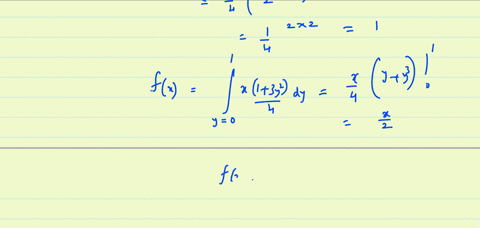 = 1/4 (
= 1/4 2×2 = 1
f(x) = ∫_{y=0}^{1} x(1+3y²)/4 dy = x/4 (y+y³)|_0^1
= x/2
f(